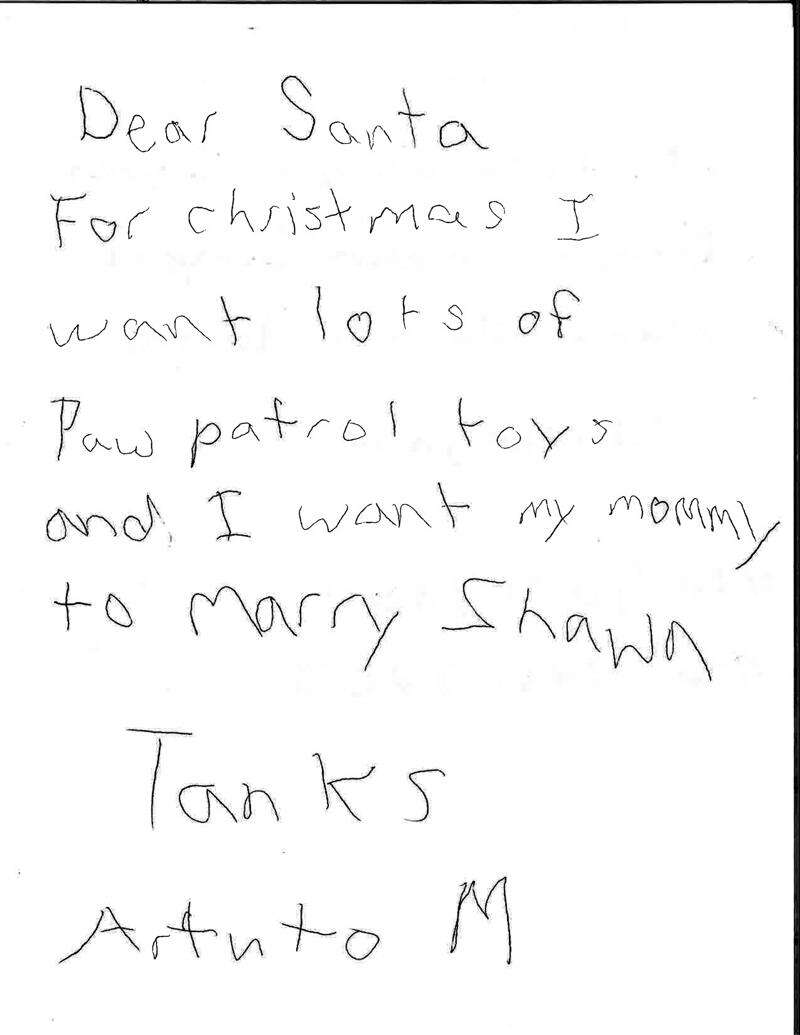 Dear Santa
For christmas I
want lots of
Paw patrol toys
and I want my mommy
to marry Shawn
Tanks
M